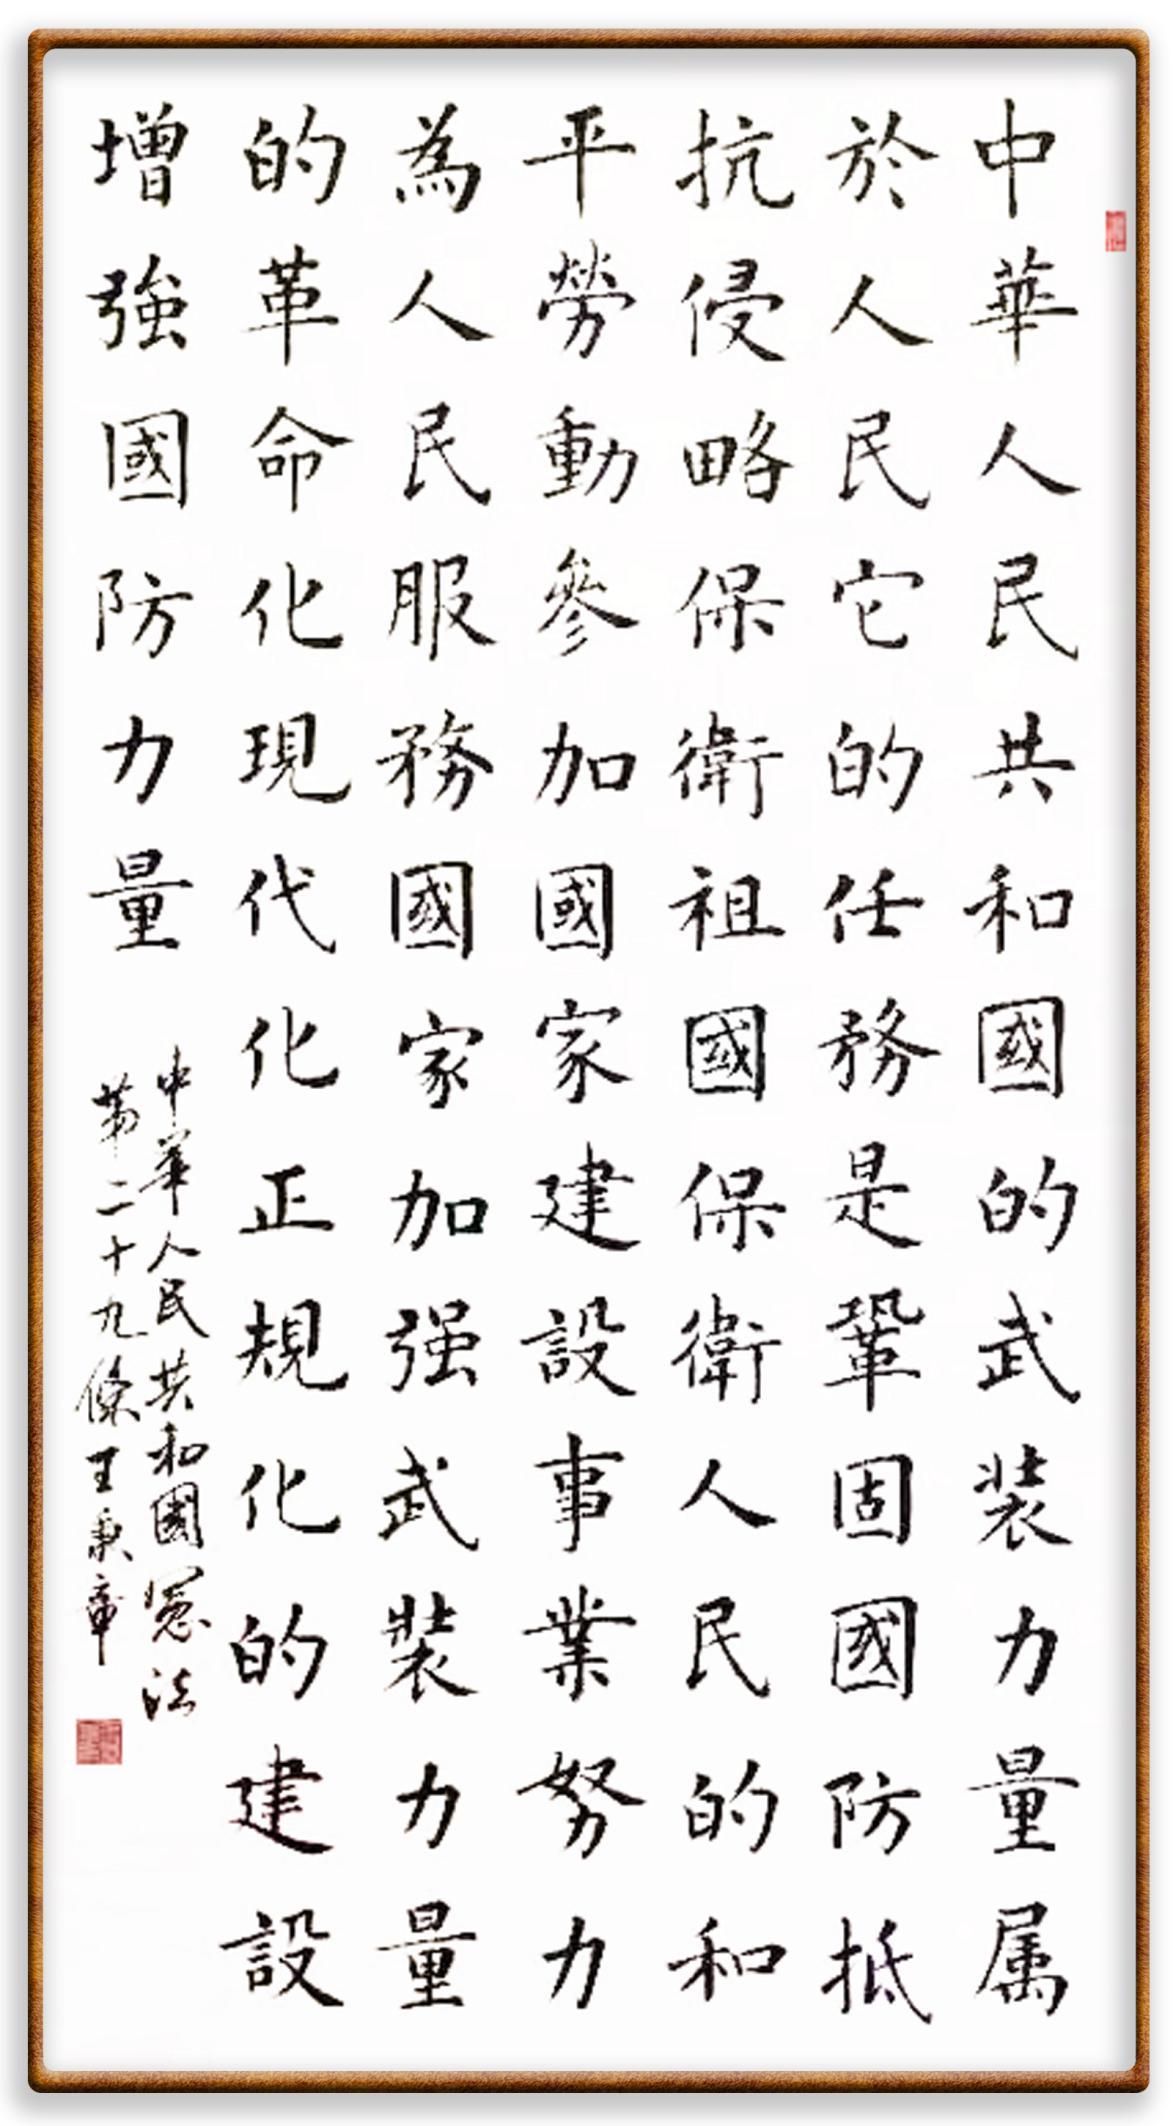 中華人民共和國的武装力量属
於人民它的任務是鞏固國防抵
抗侵略保衛祖國保衛人民的和
平勞動參加國家建設事業努力
為人民服務國家加强武裝力量
的革命化現代化正規化的建設
增強國防力量
中華人民共和國憲法
第二十九條王秉章